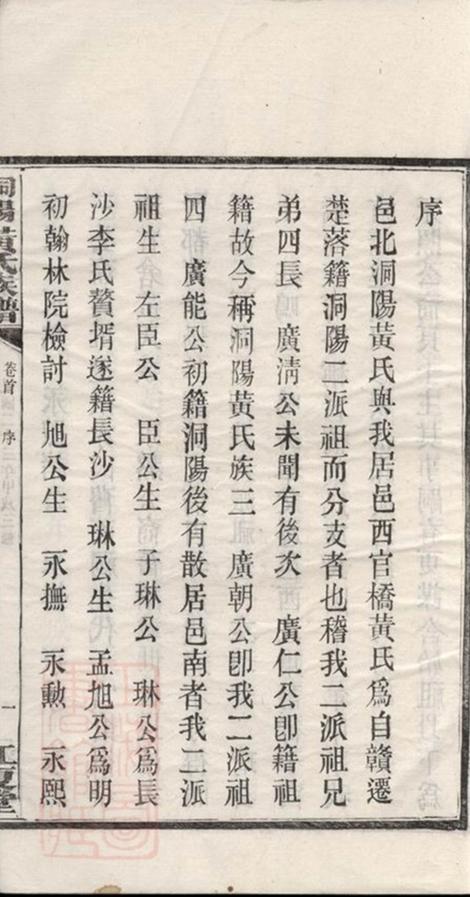 序
邑北洞陽黃氏與我居邑西官橋黃氏爲自贛遷
楚落籍洞陽二派祖而分支者也稽我二派祖兄
弟四長 廣淸公未聞有後次 廣仁公卽籍祖
籍故今稱洞陽黃氏族三 廣朝公卽我二派祖
四 廣能公初籍洞陽後有散居邑南者我二派
祖生 左臣公 臣公生 子琳公 琳公爲長
沙李氏贅壻遂籍長沙 琳公生 孟旭公爲明
初翰林院檢討 旭公生 永撫 永勳 永熙
洞陽黃氏族譜
卷首 序
一
江夏堂